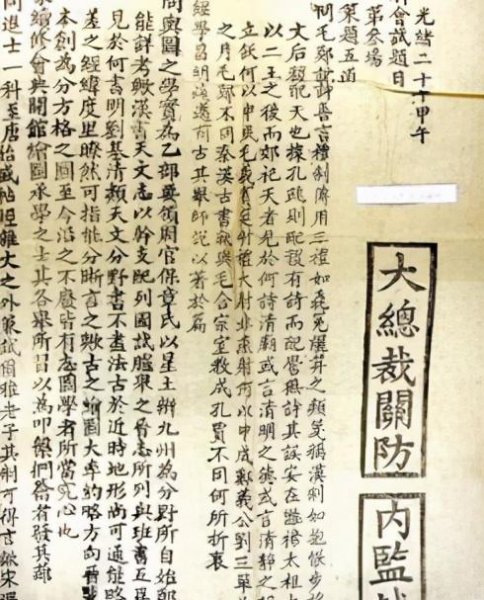 大總裁關防
内監
光緒二十年甲午
科會試題目
第叁場
策題五道
問毛鄭說詩喜言禮制鄭用三禮如袞冕纚笄之類箋稱漢制如
文后稷配天也據孔疏則配設有詩而配譽無詩其誤安在
以二王之後而郊祀天者見於何詩清廟或言清明之德或言清靜之
何以申毛義賓筵大射非燕射何以申成鄭義公劉三單
之月毛鄭不同秦漢古書孰與毛合宗室教成孔賈不同何所折衷
經學昌明而古其舉師說以著於扁
問輿圖之學實為乙部要領周官保章氏以星土辨九州為分野所自始鄭
能詳考歟漢書天文志以幹支配列國試臚舉之晉志所列與班書互異
見於何書明劉基清類天文分野書不盡法古於近時地形尚可通能略
差之經緯度里瞭然可指能分晰言之歟古之繪圖大率約略方向晉
本創為分方格之圖至今沿之不廢皆有志圖學者所當究心也
家續修會典開館繪圖承學之士其各舉所習以為叩槃捫籥者發其蔀
問進士一科至唐始盛帖經雜文之外兼試爾雅老子其制可得言歟宋